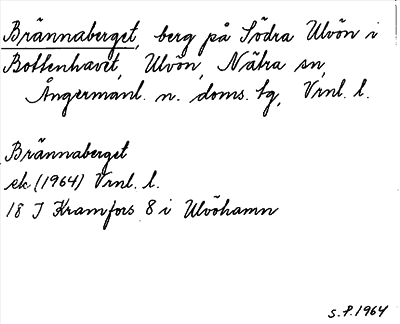 Brännaberget, berg på Södra Ulvön i
Bottenhavet, Ulvön, Nätra sn,
Ångermanl. n. doms. tg, Vrnl. l.
Brännaberget
ek (1964) Vrnl. l.
18 J Kramfors 8 i Ulvöhamn
s. f. 1964